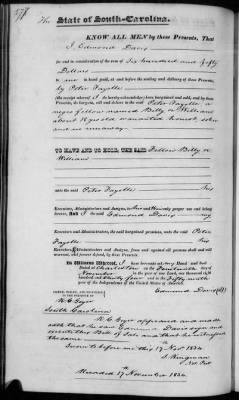 The State of South-Carolina.
KNOW ALL MEN by these Presents, That
I, Edmond Davis
for and in consideration of the sum of Six hundred and fifty
Dollars
to me in hand paid, at and before the sealing and delivery of these Presents,
by Peter Fayolle
(the receipt whereof I do hereby acknowledge) have bargained and sold, and by these
Presents, do bargain, sell and deliver to the said Peter Fayolle a
negro fellow named Billy or William
about 18 years old warranted honest, sober
and no runaway
TO HAVE AND TO HOLD, THE SAID Fellow Billy or
William
unto the said Peter Fayolle his
Executors, Administrators and Assigns, to his and their only proper use and behoof
forever. And I the said Edmond Davis my
Executors and Administrators, the said bargained premises, unto the said Peter
Fayolle his
Executors, Administrators and Assigns, from and against all persons shall and will
warrant, and forever defend, by these Presents.
In Witness Whereof, I have hereunto set my Hand and Seal
Dated at Charleston on the Fourteenth day of
November in the year of our Lord, one thousand eight
hundred and thirty four and in the fifty ninth
year of the Independence of the United States of America.
SIGNED, SEALED, AND DELIVERED
IN THE PRESENCE OF
Edmund Davis
South Carolina
appeared and made
oath that he saw Edmund Davis sign and
this Bill of Sale and that he witnessed
the same
Sworn to before me this 17 Novr 1834
Recorded 17 November 1834